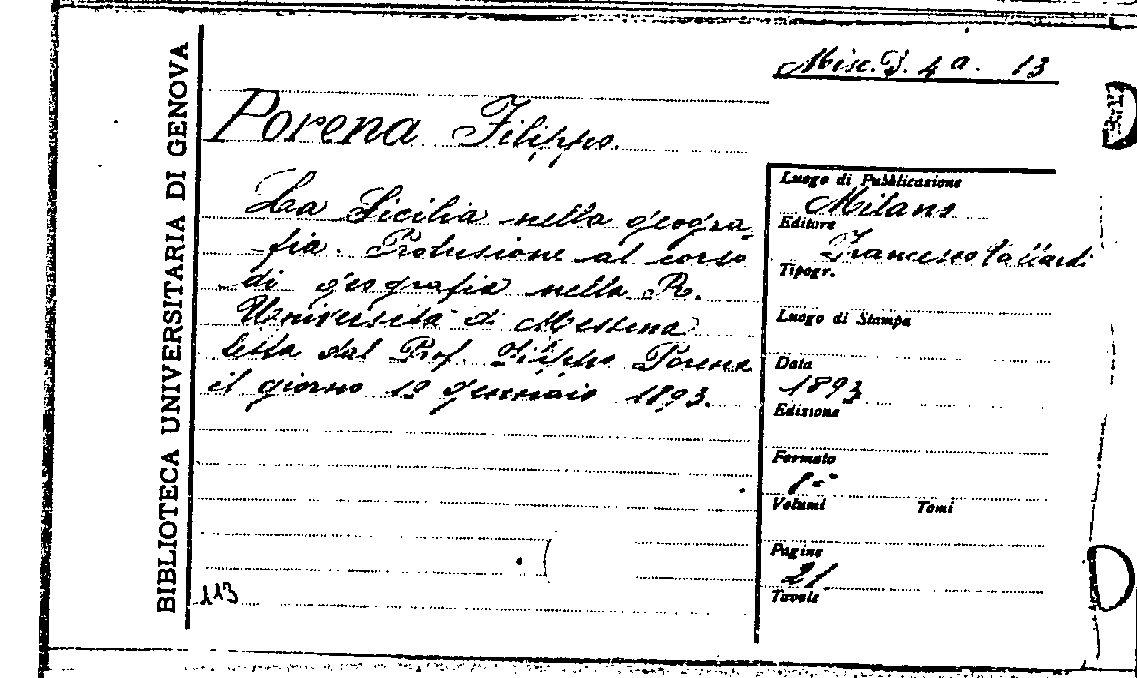 BIBLIOTECA UNIVERSITARIA DI GENOVA
Misc. D. 4a. 13
Porena Filippo.
La Sicilia nella geogra-
fia. Prolusione al corso
di geografia nella R.
Università di Messina
letta dal Prof. Filippo Porena
il giorno 19 gennaio 1893.
113
Luogo di Pubblicazione
Milano
Editore
Francesco Vallardi
Tipogr.
Luogo di Stampa
Data
1893
Edizione
Formato
8º
Volumi Tomi
Pagine
21
Tavole